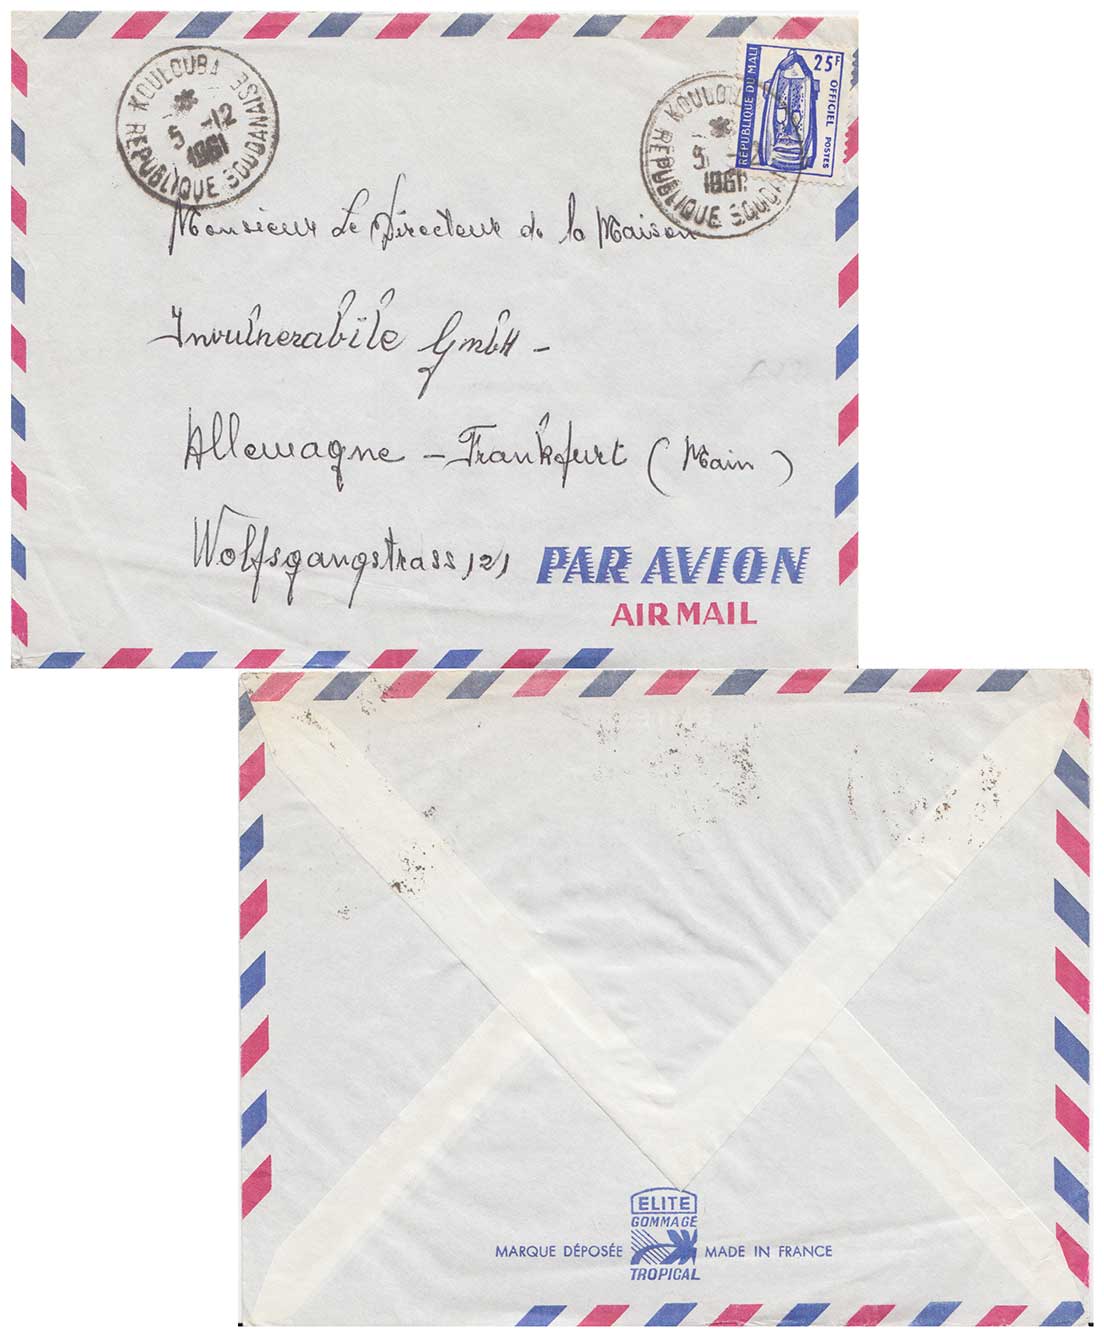 KOULOUBA
5 -12
1961
REPUBLIQUE SOUDANAISE
KOULOU
5
1961
REPUBLIQUE SOUDAN
REPUBLIQUE DU MALI
25F
OFFICIEL POSTES
Monsieur Le Directeur de la Maison
Invulnerabile GmbH -
Allemagne - Frankfurt (Main)
Wolfsgangstrass 121
PAR AVION
AIR MAIL
ELITE
GOMMAGE
MARQUE DÉPOSÉE MADE IN FRANCE
TROPICAL